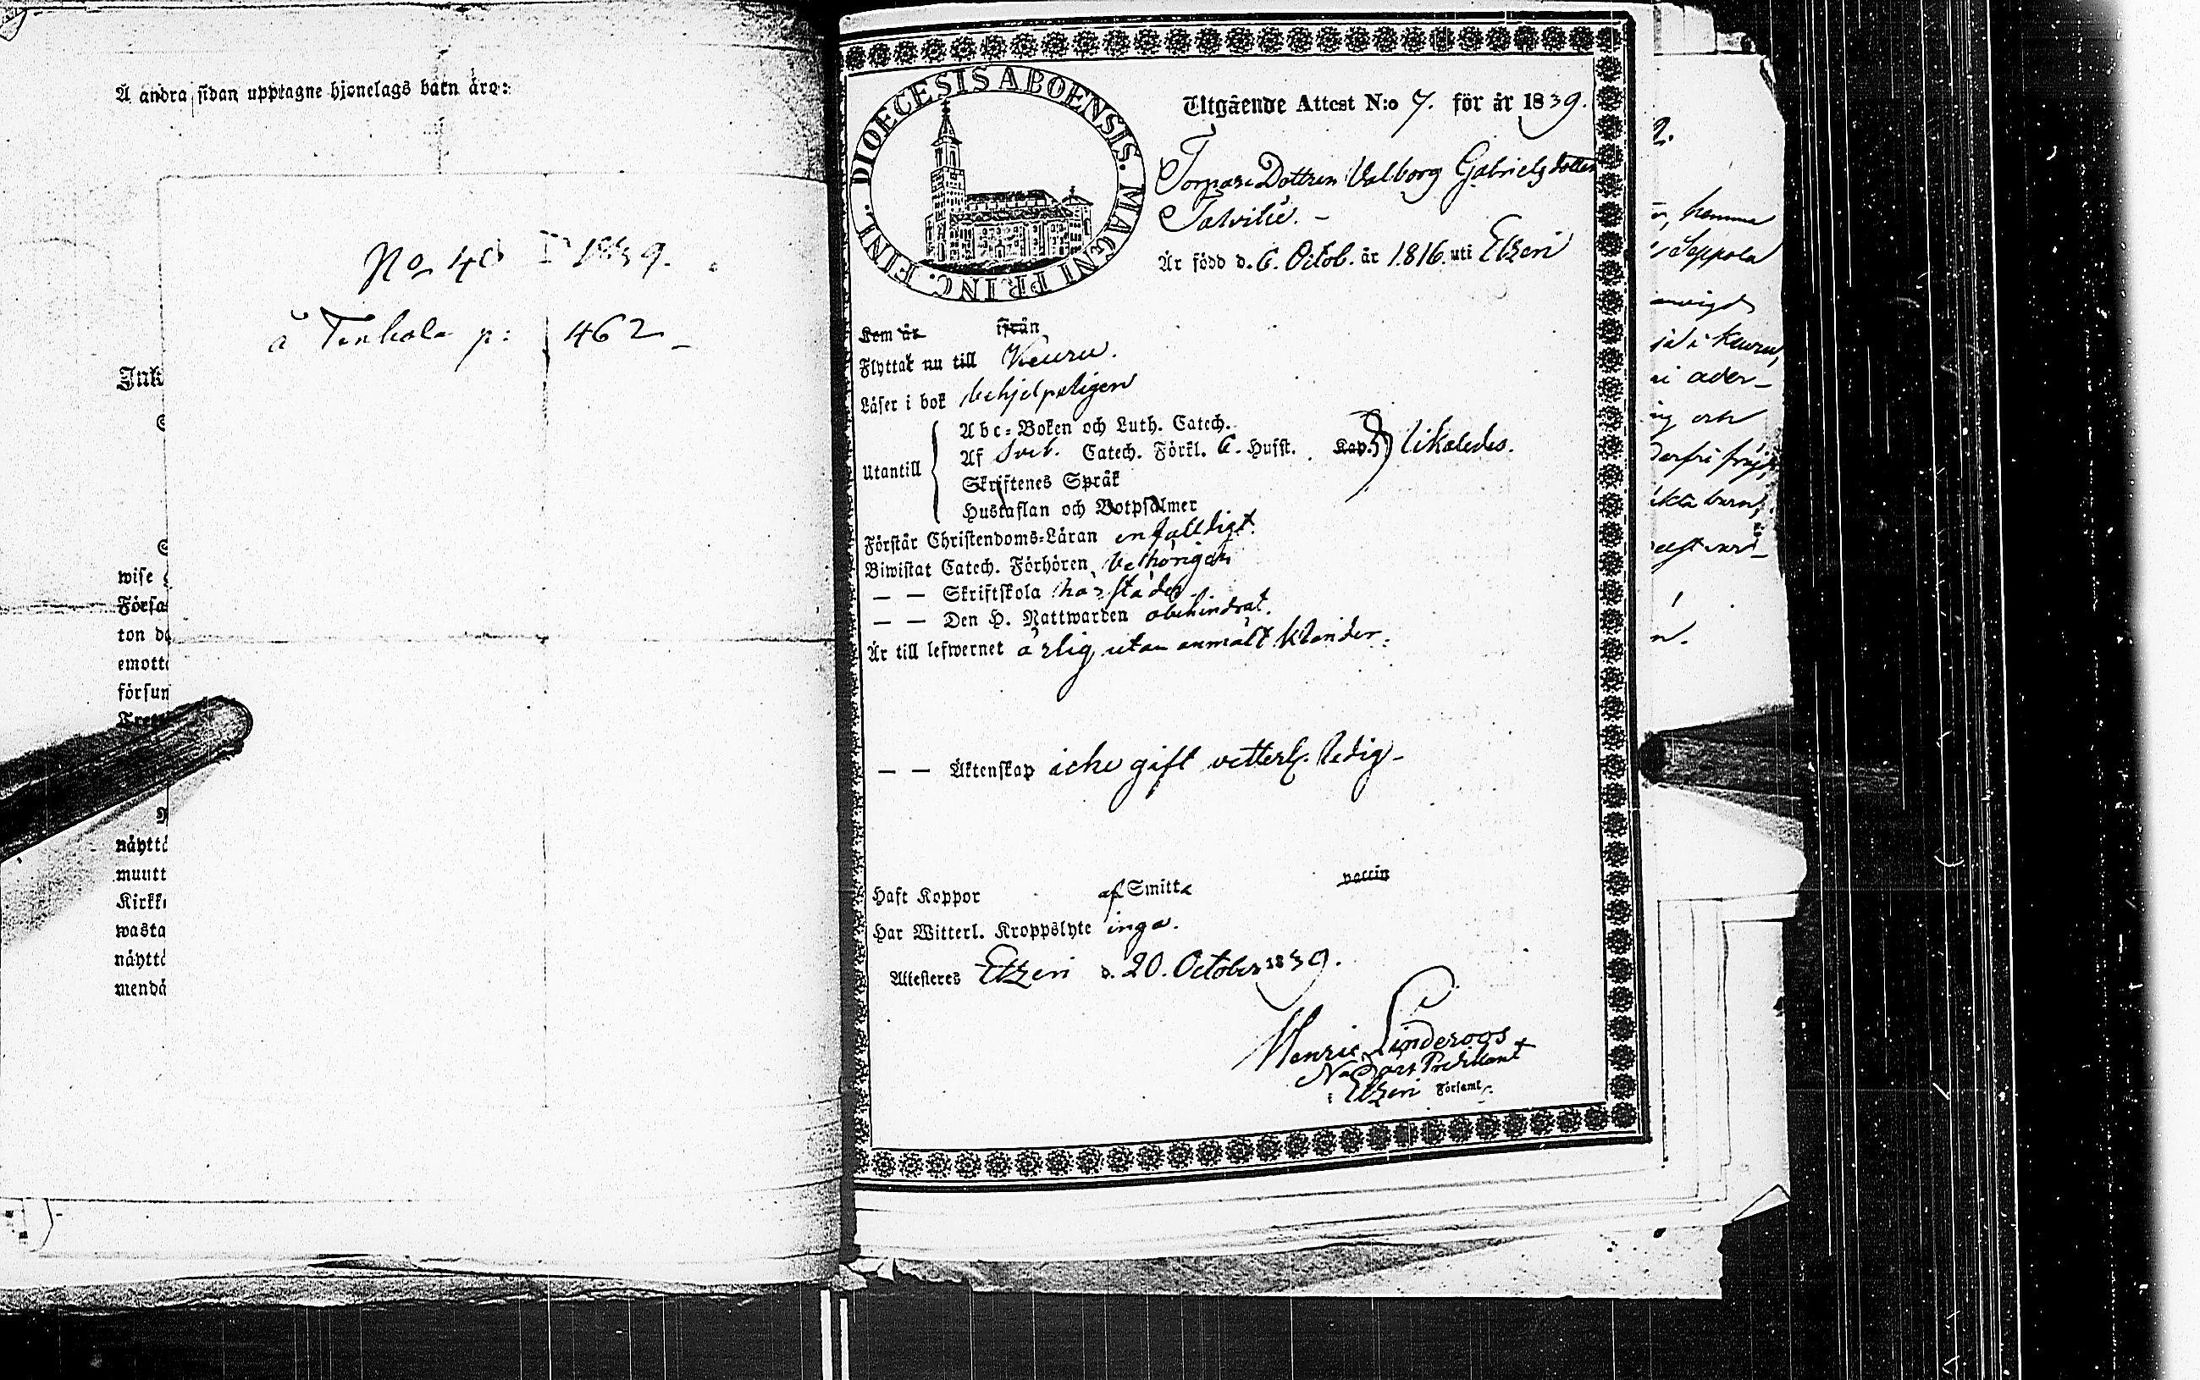 Å andra sidan upptagne hjonelags barn äro:
No 40 1839.
å Tenhola p: 462
Ink
wise
Församl
ton
emott
försum
näyttä
muutt
Kirkk
wasta
näyttä
mendä
DIOECESIS ABOENSIS. MAGNI PRINC. FINL.
Utgående Attest N:o 7. för år 1839.
Torpare Dottren Valborg Gabrielsdotter
Talvilie. -
Är född d. 6. Octob. år 1816. uti Etzeri
Kom är ifrån
Flyttar nu till Keuru.
Läser i bok behjelpeligen
Utantill
Abc-Boken och Luth. Catech.
Af Sveb. Catech. Förkl. 6. Hufst. Kap. likaledes.
Skriftenes Språk
Hustaflan och Botpsalmer
Förstår Christendoms-Läran enfalldigt.
Biwistat Catech. Förhören behörigen
— — Skriftskola härstädes.
— — Den H. Nattwarden obehindrat.
Är till lefwernet ärlig utan anmält klander.
— — Äktenskap icke gift vetterl. ledig -
Haft Koppor af Smitta vaccin
Har Witterl. Kroppslyte inga.
Attesteres Etzeri d. 20. October 1839.
Henric Linderoos
Nådårs Predikant
i Etzeri Församl.
hemma
Seppola
i Keuru,
och
barn,